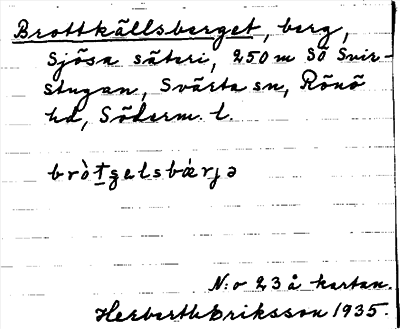 Brottkällsberget, berg,
Sjösa säteri, 250 m SÖ Svir-
stugan, Svärta sn, Rönö
hd, Söderm. l.
bròtʂelsbærjə
N:o 23 å kartan.
Herbert Eriksson 1935.